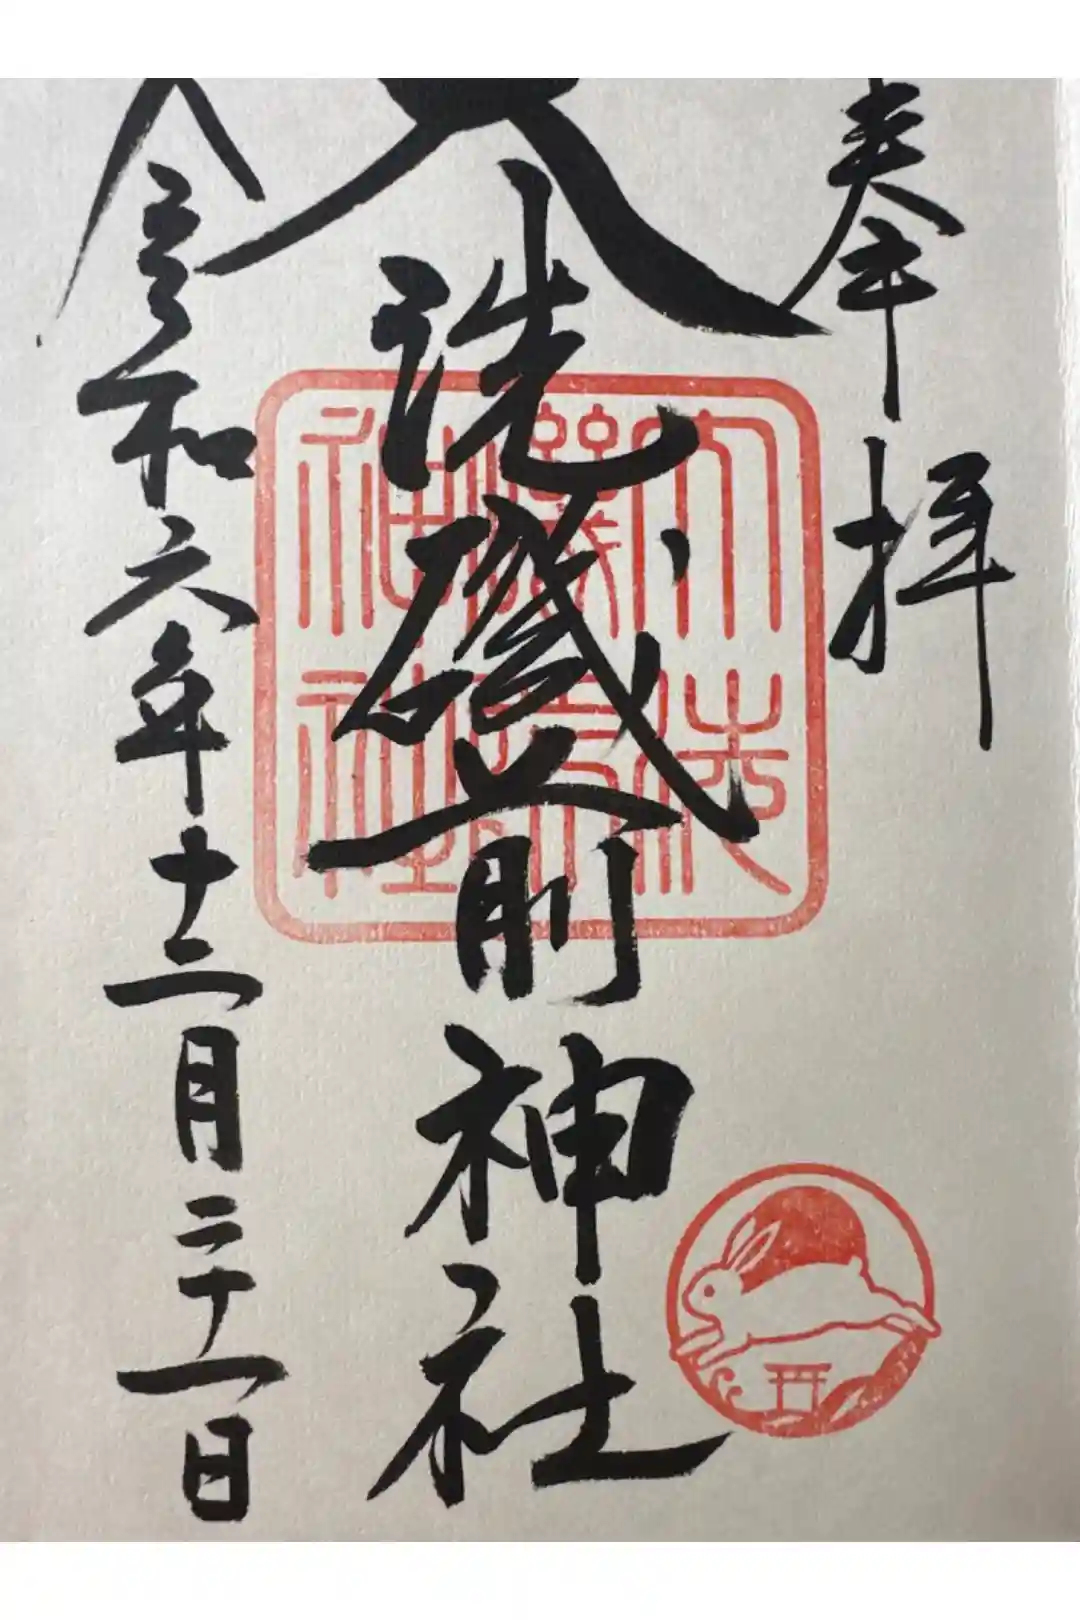 奉拝
大洗磯前神社
大洗磯前神社
令和六年十二月二十一日